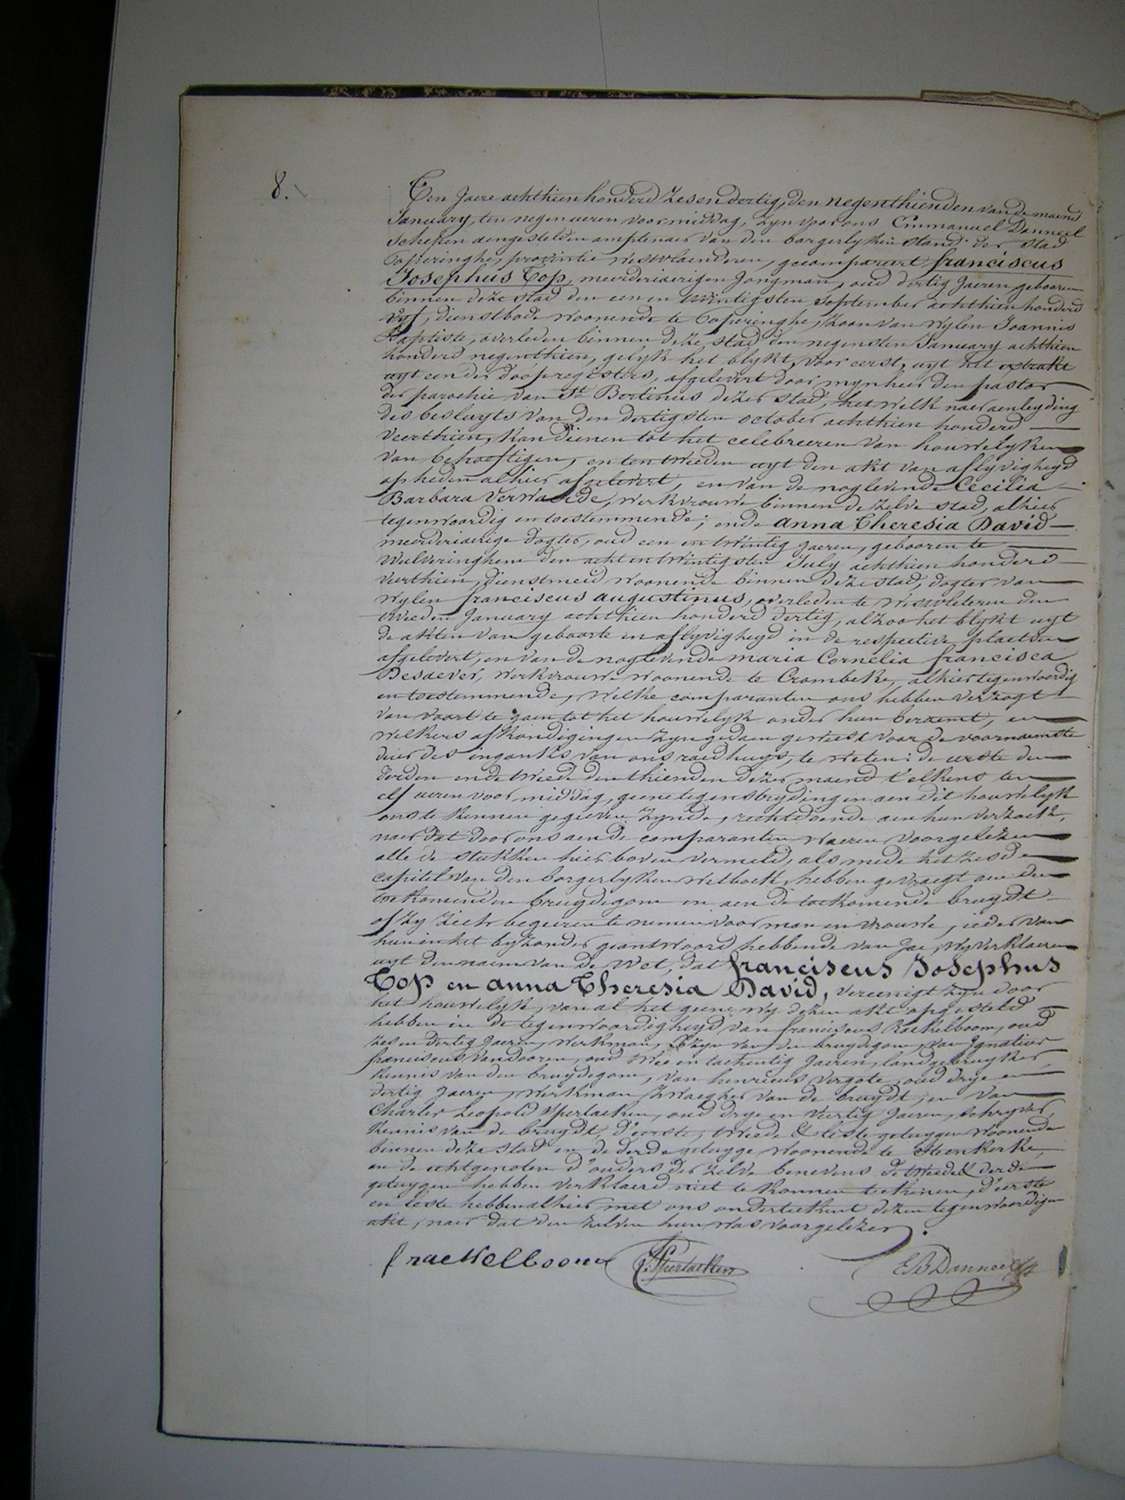 8.
Ten Jaere achthien honderd zes en dertig, den negenthienden van de maend
January, ten negen ueren voormiddag, zyn voor ons Emmanuel Danneel
Schepen aengestelden amptenaer van den borgerlyken stand der stad
Poperinghe, provintie westvlaenderen, gecompareert franciscus
Josephus Top, meerderjaerigen Jongman, oud dertig jaeren, gebooren
binnen deze stad den een en twintigsten September achthien honderd
vyf, dienstbode woonende te Poperinghe, zoon van wylen Joannis
Baptiste, overleden binnen deze stad den negensten January achthien
honderd negenthien, gelyk het blykt, voor eerst, uyt het extrakt
uyt een der doopregisters, afgelevert door mynheer den pastor
der parochie van St Bertinus dezer stad, het welk naer aenleyding
des besluyts van den dertigsten october achthien honderd
veerthien, kan dienen tot het celebreeren van houwelyken
van behoeftigen, en ten tweeden uyt den akt van aflyvigheyd
op heden alhier afgelevert, en van de noglevende Cecilia
Barbara Verwaerde, werkvrouwe binnen de zelve stad, alhier
tegenwoordig en toestemmende; ende anna Theresia David
meerderjaerige dogter, oud een en twintig jaeren, gebooren te
Wulveringhem den acht en twintigsten July achthien honderd
veerthien, dienstmeid woonende binnen deze stad, dogter van
wylen franciscus augustinus, overleden te Westvleteren den
tweeden January achthien honderd dertig, alzoo het blykt uyt
de akten van geboorte en aflyvigheyd in de respective plaetsen
afgelevert, en van de noglevende maria Cornelia francisca
Desaever, werkvrouwe woonende te Crombeke, alhier tegenwoordig
en toestemmende, welke comparanten ons hebben verzogt
van voort te gaen tot het houwelyk onder hun beraemt, en
welkers afkondigingen zyn gedaen geweest voor de voornaemste
deur des ingancks van ons raedhuys, te weten: de eerste den
derden en de tweede den thienden dezer maend t'elkens ten
elf ueren voor middag, geene tegenstrydingen aen dit houwelyk
ons te kennen gegeven zynde, rechtdoende aen hun verzoek,
naer dat door ons aen de comparanten waeren voorgelezen
alle de stukken hier boven vermeld, als mede het zesde
capitel van den borgerlyken wetboek, hebben gevraegt aen den
toekomenden bruydegom en aen de toekomende bruydt
of zy zich begeeren te nemen voor man en vrouwe, ieder van
hun in het byzonder geantwoord hebbende van Jae, wy verklaeren
uyt den naem van de wet, dat franciscus Josephus
Top en anna Theresia David, vereenigt zyn door
het houwelyk, van al het geene wy dezen akt opgesteld
hebben in de tegenwoordigheyd van franciscus Raekelboom, oud
zes en dertig jaeren, werkman, kozyn van den bruydegom, van Ignatius
franciscus Vandooren, oud twee en tachentig jaeren, landgebruyker
kennis van den bruydegom, van henricus Vergote, oud drye en
dertig jaeren, werkman, zwaeger van de bruydt, en van
Charles Leopold Sperlaeken, oud drye en veertig jaeren, schryver,
kennis van de bruydt, d'eerste, tweede & leste getuygen woonende
binnen deze stad en de derde getuyge woonende te Steenkerke,
en de echtgenoten d'ouders der zelve benevens de tweede & derde
getuygen hebben verklaerd niet te konnen teekenen, d'eerste
en leste hebben alhier met ons onderteekent dezen tegenwoordigen
akt, naer dat den zelven hun was voorgelezen.
f raekelboom Sperlaeken E. B. Danneel